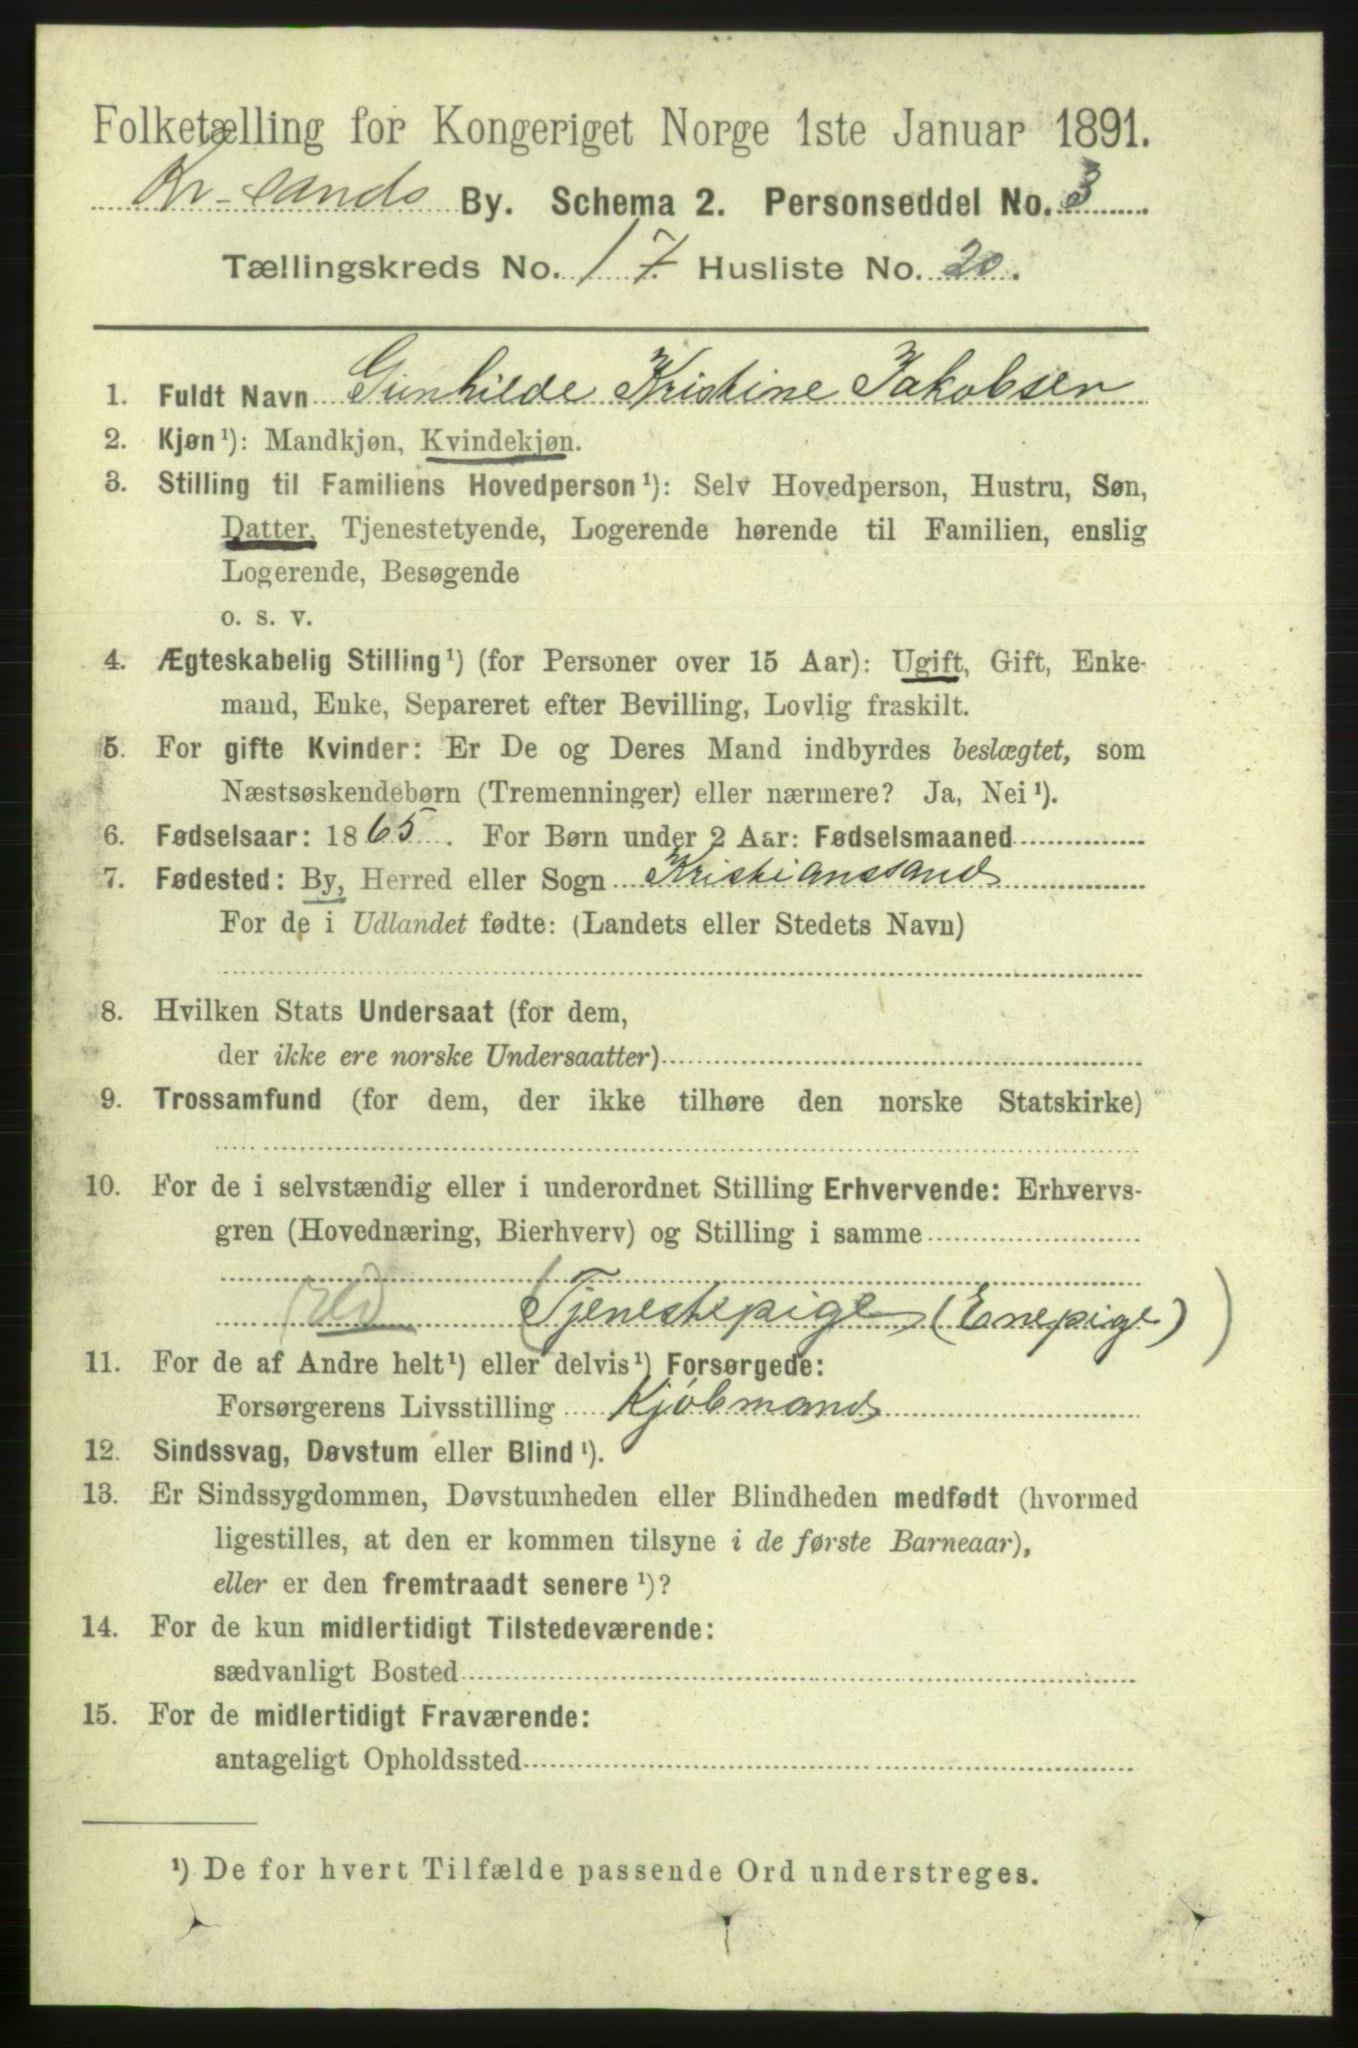 Folketælling for Kongeriget Norge 1ste Januar 1891.
Kr-sands By. Schema 2. Personseddel No. 3
Tællingskreds No. 17. Husliste No. 20.
1. Fuldt Navn Gunhilde Kristine Jakobsen
2. Kjøn¹): Mandkjøn, Kvindekjøn.
3. Stilling til Familiens Hovedperson¹): Selv Hovedperson, Hustru, Søn,
Datter, Tjenestetyende, Logerende hørende til Familien, enslig
Logerende, Besøgende
o. s. v.
4. Ægteskabelig Stilling¹) (for Personer over 15 Aar): Ugift, Gift, Enke-
mand, Enke, Separeret efter Bevilling, Lovlig fraskilt.
5. For gifte Kvinder: Er De og Deres Mand indbyrdes beslægtet, som
Næstsøskendebørn (Tremenninger) eller nærmere? Ja, Nei¹).
6. Fødselsaar: 1865. For Børn under 2 Aar: Fødselsmaaned
7. Fødested: By, Herred eller Sogn Kristianssand
For de i Udlandet fødte: (Landets eller Stedets Navn)
8. Hvilken Stats Undersaat (for dem,
der ikke ere norske Undersaatter)
9. Trossamfund (for dem, der ikke tilhøre den norske Statskirke)
10. For de i selvstændig eller i underordnet Stilling Erhvervende: Erhvervs-
gren (Hovednæring, Bierhverv) og Stilling i samme
(Tjenestepige (Enepige))
11. For de af Andre helt¹) eller delvis¹) Forsørgede:
Forsørgerens Livsstilling Kjøbmand
12. Sindssvag, Døvstum eller Blind¹).
13. Er Sindssygdommen, Døvstumheden eller Blindheden medfødt (hvormed
ligestilles, at den er kommen tilsyne i de første Barneaar),
eller er den fremtraadt senere¹)?
14. For de kun midlertidigt Tilstedeværende:
sædvanligt Bosted
15. For de midlertidigt Fraværende:
antageligt Opholdssted
¹) De for hvert Tilfælde passende Ord understreges.